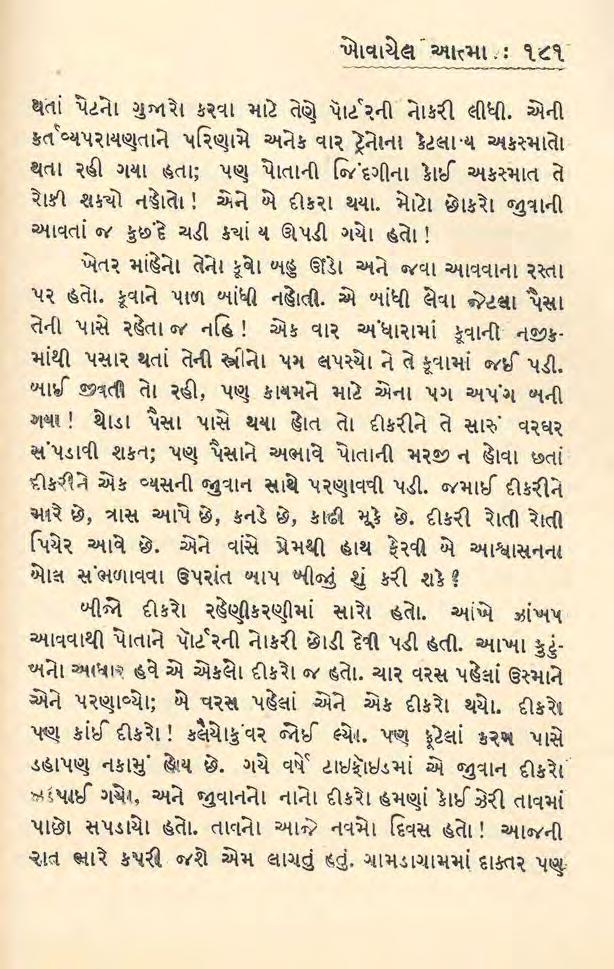 ખોવાયેલ આત્મા : ૧૮૧
થતાં પેટનો ગુજારો કરવા માટે તેણે પૉર્ટરની નોકરી લીધી. એની
કર્તવ્યપરાયણતાને પરિણામે અનેક વાર ટ્રેનોના કેટલા ય અકસ્માતો
થતા રહી ગયા હતા; પણ પોતાની જિંદગીના કોઈ અકસ્માત તે
રોકી શક્યો નહોતો! એને બે દીકરા થયા. મોટો છોકરો જુવાની
આવતાં જ કુછંદે ચડી ક્યાં ય ઊપડી ગયો હતો!
ખેતર માંહેનો તેનો કૂવો બહુ ઊંડો અને જવા આવવાના રસ્તા
પર હતો. કૂવાને પાળ બાંધી નહોતી. એ બાંધી લેવા જેટલા પૈસા
તેની પાસે રહેતા જ નહિ! એક વાર અંધારામાં કૂવાની નજીક-
માંથી પસાર થતાં તેની સ્ત્રીનો પગ લપસ્યો ને તે કૂવામાં જઈ પડી.
બાઈ જીવતી તો રહી, પણ કાયમને માટે એના પગ અપંગ બની
ગયા! થોડા પૈસા પાસે થયા હોત તો દીકરીને તે સારું વરઘર
સંપડાવી શકત; પણ પૈસાને અભાવે પોતાની મરજી ન હોવા છતાં
દીકરીને એક વ્યસની જુવાન સાથે પરણાવવી પડી. જમાઈ દીકરીને
મારે છે, ત્રાસ આપે છે, કનડે છે, કાઢી મૂકે છે. દીકરી રોતી રોતી
પિયેર આવે છે. એને વાંસે પ્રેમથી હાથ ફેરવી બે આશ્વાસનના
બોલ સંભળાવવા ઉપરાંત બાપ બીજું શું કરી શકે?
બીજો દીકરો રહેણીકરણીમાં સારો હતો. આંખે ઝાંખપ
આવવાથી પોતાને પૉર્ટરની નોકરી છોડી દેવી પડી હતી. આખા કુટું-
બનો આધાર હવે એ એકલો દીકરો જ હતો. ચાર વરસ પહેલાં ઉસ્માને
એને પરણાવ્યો; બે વરસ પહેલાં એને એક દીકરો થયો. દીકરો
પણ કાંઈ દીકરો! કલૈયોકુંવર જોઈ લ્યો. પણ ફૂટેલાં કરમ પાસે
ડહાપણ નકામું હોય છે. ગયે વર્ષે ટાઈફૉઈડમાં એ જુવાન દીકરો
ઝડપાઈ ગયો, અને જુવાનનો નાનો દીકરો હમણાં કોઈ ઝેરી તાવમાં
પાછો સપડાયો હતો. તાવનો આજે નવમો દિવસ હતો! આજની
રાત ભારે કપરી જશે એમ લાગતું હતું. ગામડાગામમાં દાક્તર પણ